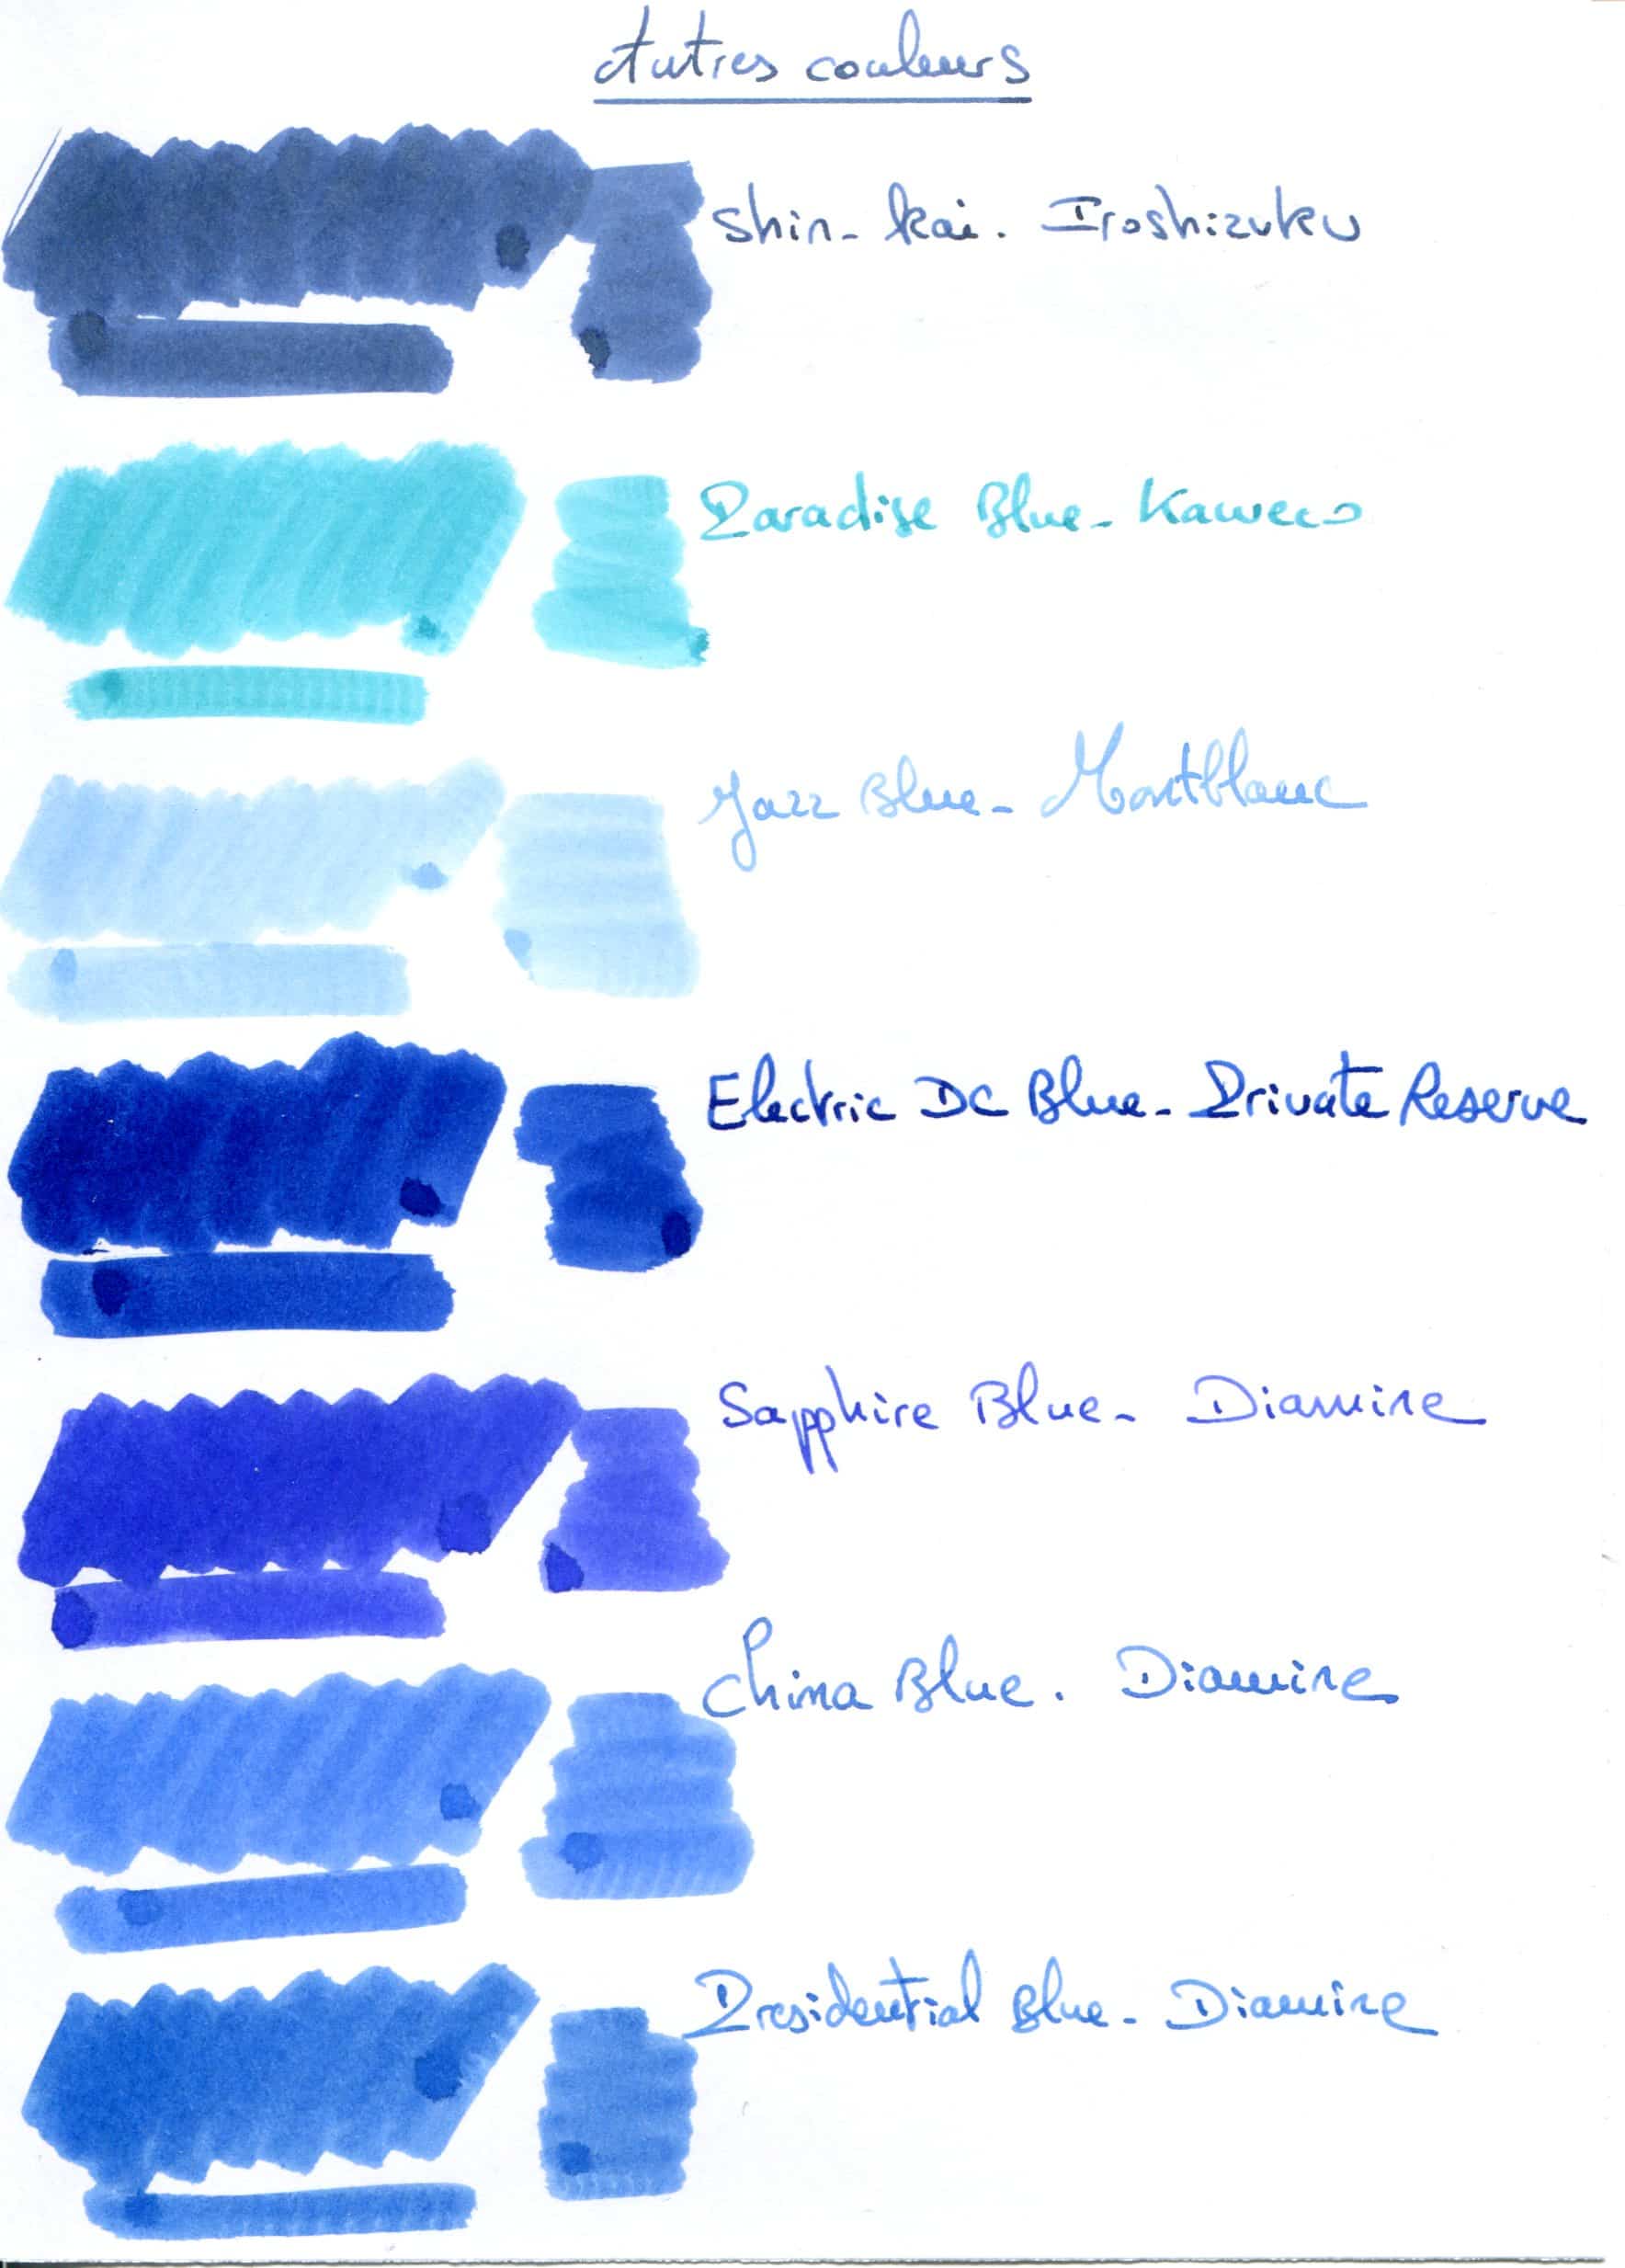 Autres couleurs
Shin-kai. Iroshizuku
Paradise Blue - Kaweco
Jazz Blue - Montblanc
Electric DC Blue - Private Reserve
Sapphire Blue - Diamine
China Blue. Diamine
Presidential Blue - Diamine